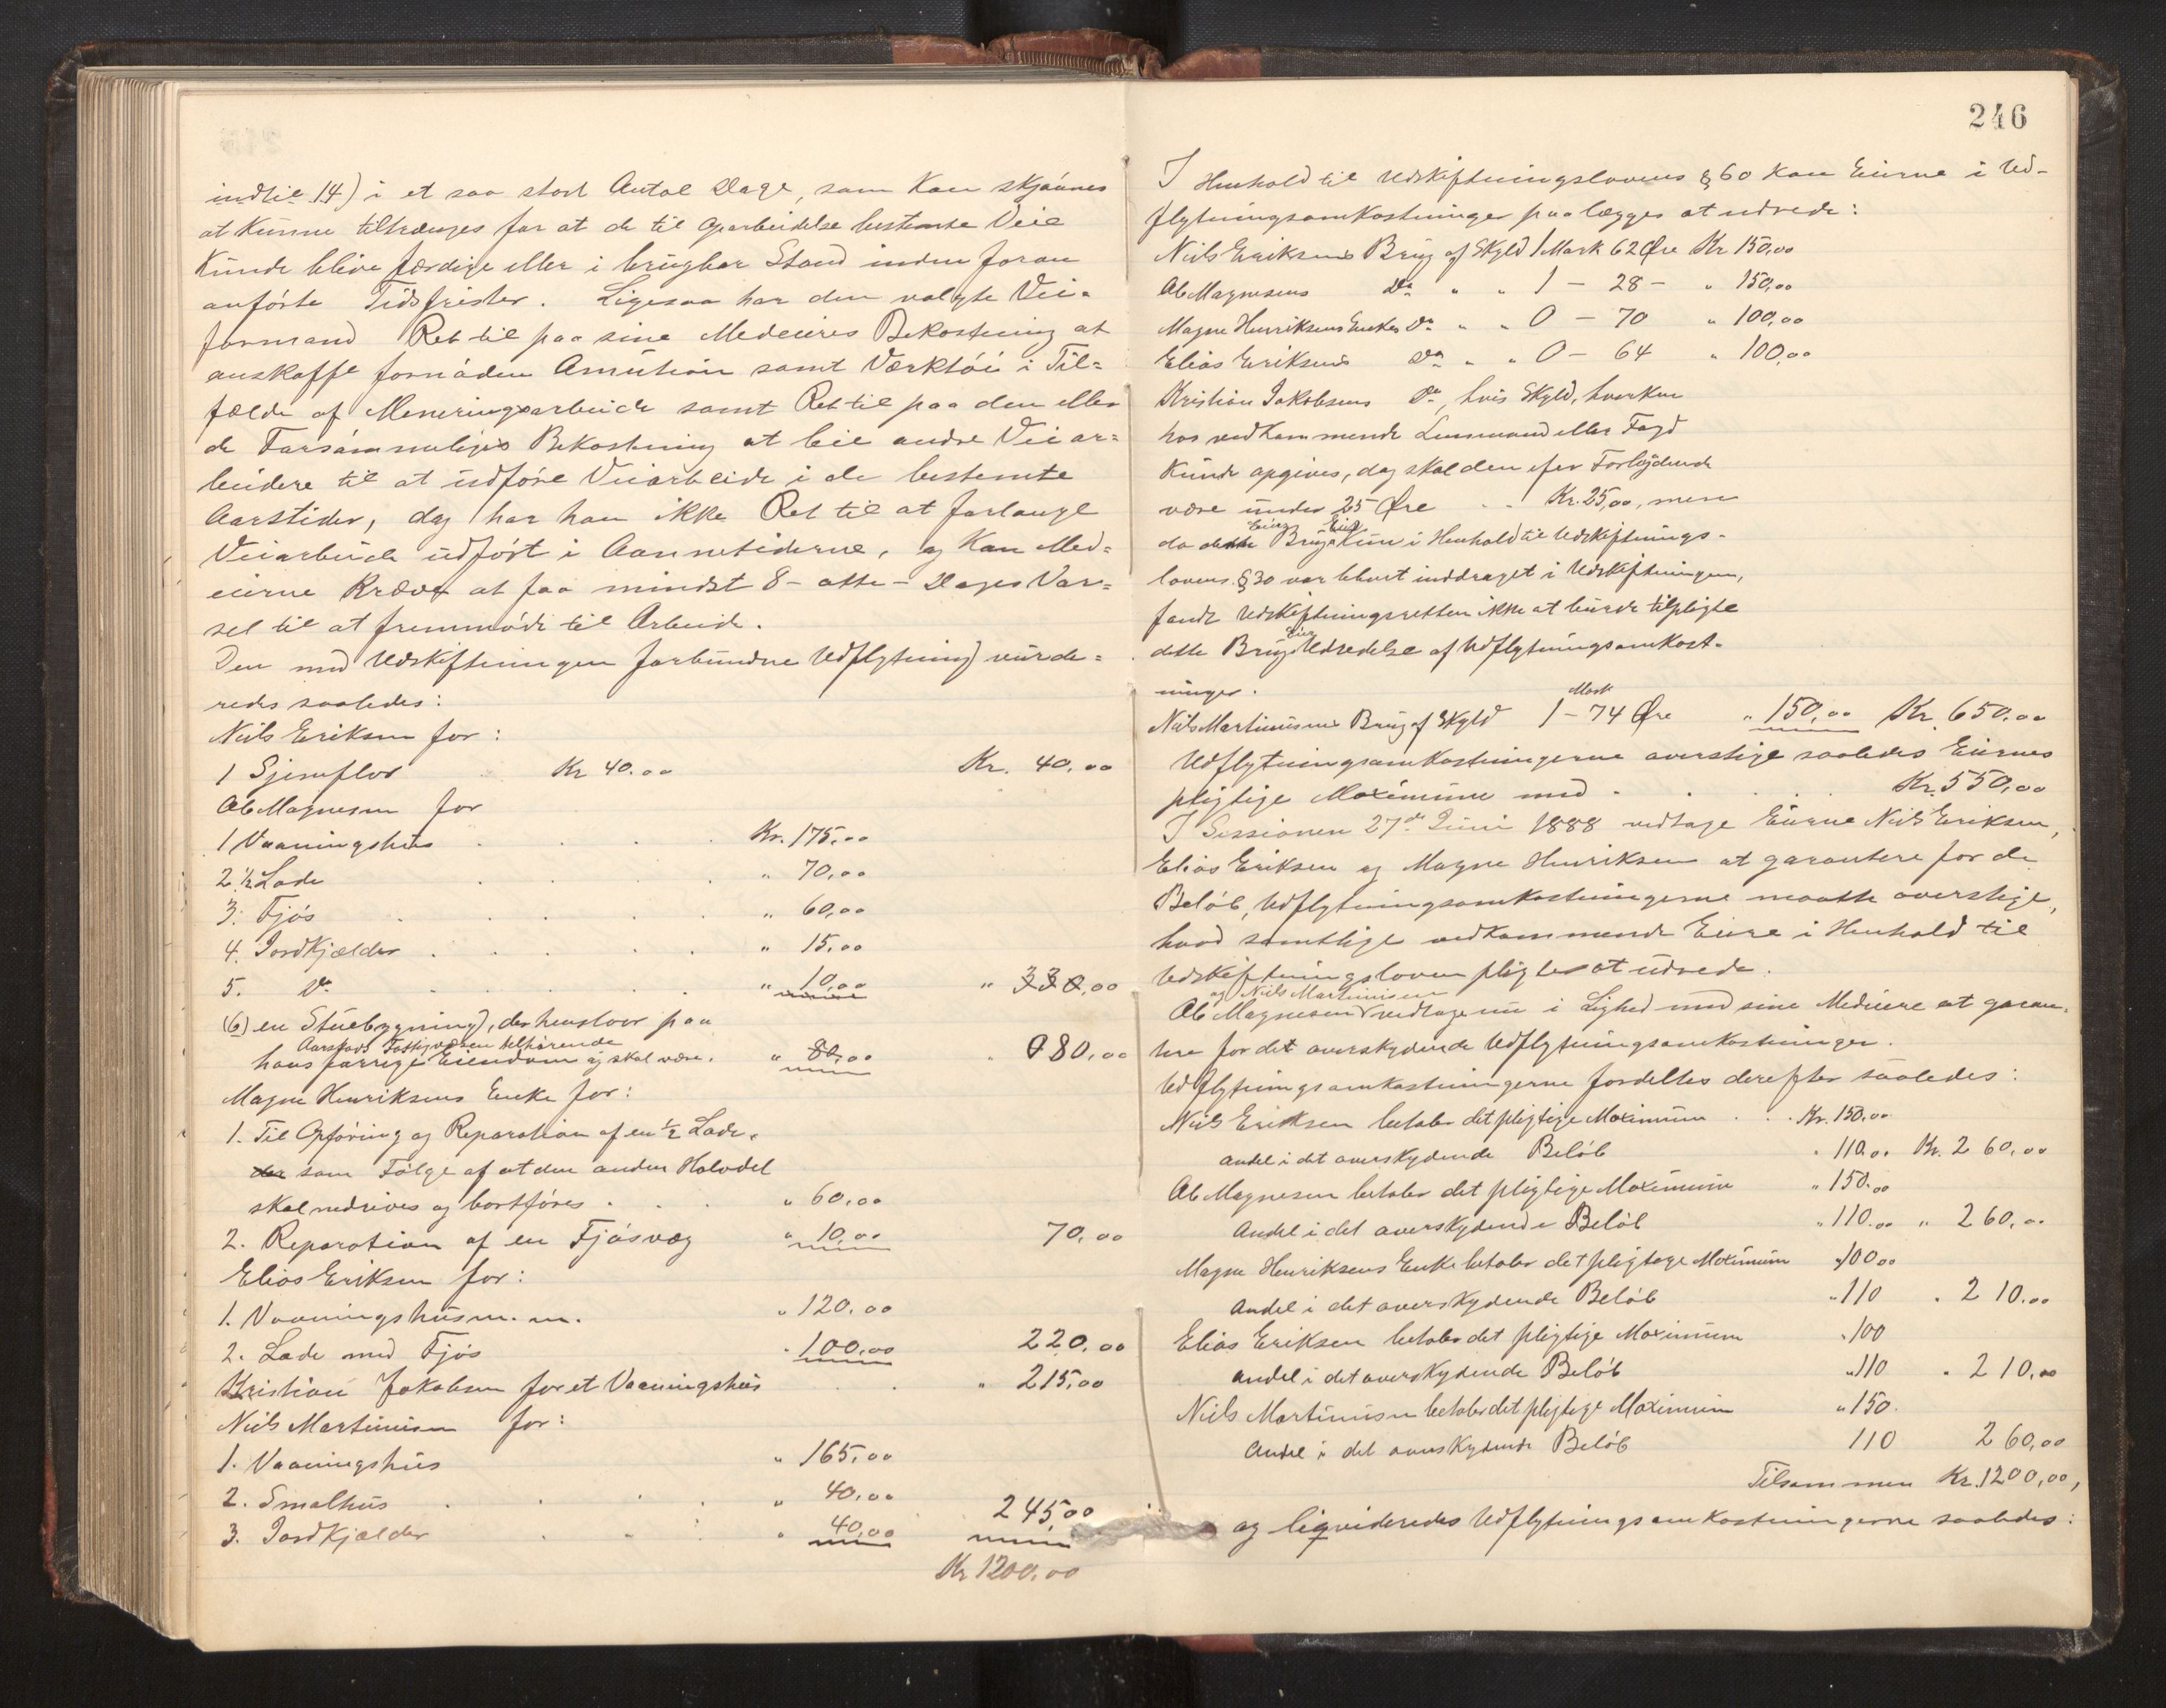 indtil 14) i et saa stort Antal Dage, som kan skjønnes
at kunne tiltrænges for at de til Oparbeidelse bestemte Veie
kunde blive færdige eller i brugbar Stand inden foran
anførte Tidsfrister. Ligesaa har den valgte Vei-
formand Ret til paa sine Medeieres Bekostning at
anskaffe fornøden Amution samt Værktøi i Til-
fælde af Mineringsarbeide samt Ret til paa den eller
de Forsømmeliges Bekostning at leie andre Veiar-
beidere til at udføre Veiarbeide i de bestemte
Aarstider, dog har han ikke Ret til at forlange
Veiarbeide udført i Aannetiderne, og kan Med-
eierne kræve at faa mindst 8 - otte - Dages Var-
sel til at fremmøde til Arbeide.
Den med Udskiftningen forbundne Udflytning vurde-
redes saaledes:
Niels Eriksen for:
1 Gjemflor Kr 40.00 Kr. 40,00
Ab Magnesen for
1 Vaaningshus Kr. 175,00
2. 1/2 Lade " 70,00
3. Fjøs " 60,00
4. Jordkjælder " 15,00
5. Do " 10,00 " 330,00
(6) en Stuebygning, der henstaar paa
Aarstads Fattigvæsen tilhørende
hans forrige Eiendom og skal være. " 80,00 " 080,00
Magne Henriksens Enke for:
1. Til Opføring og Reparation af en 1/2 Lade,
der som Følge af at den anden Halvdel
skal nedrives og bortføres " 60,00
2. Reparation af en Fjøsvæg " 10,00 70,00
Elias Eriksen for:
1. Vaaningshus m. m. " 120,00
2. Lade med Fjøs " 100,00 220,00
Kristian Jakobsen for et Vaaningshus " 215,00
Niels Martinusen for:
1. Vaaningshus " 165,00
2. Smalhus " 40,00
3. Jordkjælder " 40,00 245,00
Kr 1200.00
246
I Henhold til Udskiftningslovens § 60 kan Eierne i Ud-
flytningsomkostninger paalægges at udrede:
Niels Eriksens Brug af Skyld 1 Mark 62 Øre Kr 150,00
Ab Magnesens Do " " 1 - 28 - " 150,00
Magne Henriksens Enkes Do " " 0 - 70 " 100,00
Elias Eriksens Do " " 0 - 64 " 100,00
Kristian Jakobsens Do, hvis Skyld, hverken
hos vedkommende Lensmand eller Fogd
kunde opgives, dog skal den efter Forlydende
være under 25 Øre Kr. 25,00, men
da dette Brugs Eier kun i Henhold til Udskiftnings-
lovens § 30 var blevet inddraget i Udskiftningen,
fandt Udskiftningsretten ikke at burde tilpligte
dette Brugs Eier Udredelse af Udflytningsomkost-
ninger.
Niels Martinusens Brug af Skyld 1 Mark - 74 Øre " 150,00 Kr. 650,00
Udflytningsomkostningerne overstige saaledes Eiernes
pligtige Maximum med Kr. 550,00
I Sessionen 27de Juni 1888 vedtage Eierne Niels Eriksen,
Elias Eriksen og Magne Henriksen at garantere for de
Beløb, Udflytningsomkostningerne maatte overstige,
hvad samtlige vedkommende Eiere i Henhold til
Udskiftningsloven pligter at udrede.
og Niels Martinusen
Ab Magnesen vedtage nu i Lighed med sine Medeiere at garan-
tere for det overskydende Udflytningsomkostninger.
Udflytningsomkostningerne fordeltes derefter saaledes:
Niels Eriksen betaler det pligtige Maximum Kr. 150,00
Andel i det overskydende Beløb " 110,00 Kr. 260,00
Ab Magnesen betaler det pligtige Maximum " 150,00
Andel i det overskydende Beløb " 110,00 " 260,00
Magne Henriksens Enke betaler det pligtige Maximum " 100,00
Andel i det overskydende Beløb " 110 " 210,00
Elias Eriksen betaler det pligtige Maximum " 100
Andel i det overskydende Beløb " 110 " 210,00
Niels Martinusen betaler det pligtige Maximum " 150.
Andel i det overskydende Beløb 110 260,00
Tilsammen Kr. 1200,00,
og liqvideredes Udflytningsomkostningerne saaledes: